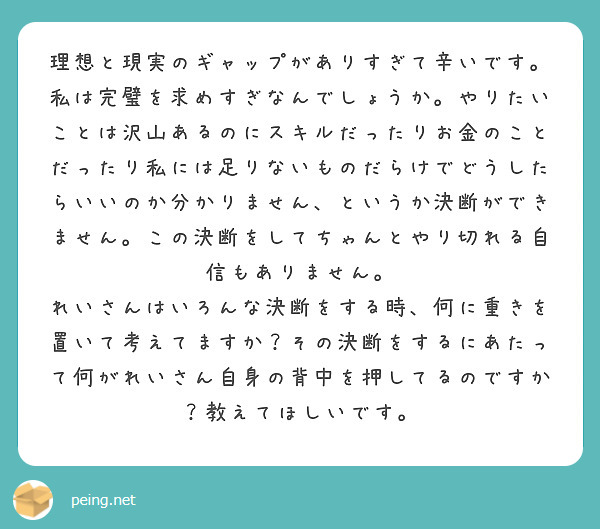 理想と現実のギャップがありすぎて辛いです。
私は完璧を求めすぎなんでしょうか。やりたい
ことは沢山あるのにスキルだったりお金のこと
だったり私には足りないものだらけでどうした
らいいのか分かりません、というか決断ができ
ません。この決断をしてちゃんとやり切れる自
信もありません。
れいさんはいろんな決断をする時、何に重きを
置いて考えてますか？その決断をするにあたっ
て何がれいさん自身の背中を押してるのですか
？教えてほしいです。
peing.net